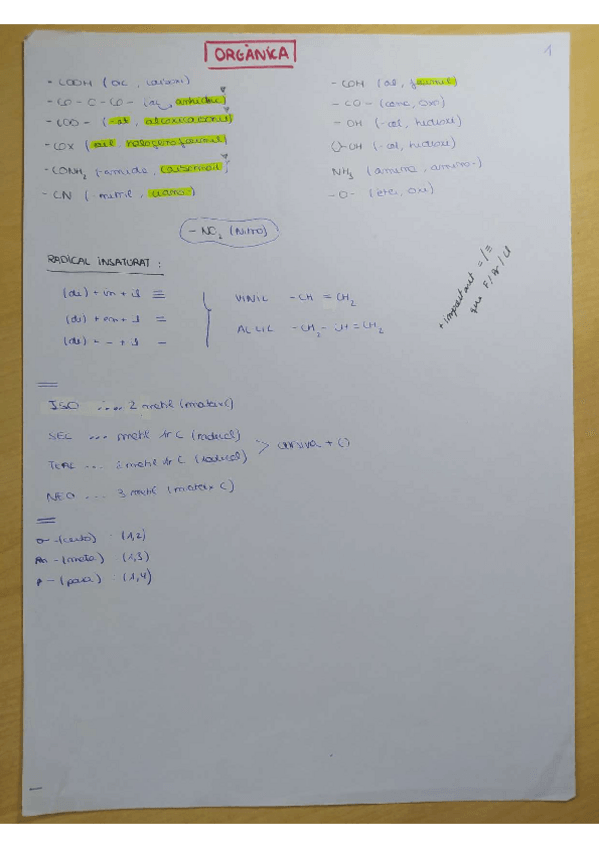 ORGÀNICA
1
- COOH (oic, carboxi)
- CO - O - CO - (oic, anhídric)
- COO - (-at, alcoxicarbonil)
- COX (oil, halogenoformil)
- CONH2 (-amida, carbamoil)
- CN (-nitril, ciano)
- COH (al, formil)
- CO - (ona, oxo)
- OH (-ol, hidroxi)
-OH (-ol, hidroxi)
NH3 (amina, amino-)
- O - (èter, oxi)
- NO2 (Nitro)
RADICAL INSATURAT :
(di) + in + il ≡
(di) + en + il =
(di) - - + il -
VINIL - CH = CH2
AL·LIL - CH2 - CH = CH2
+ important = / ≡
que F / Br / Cl
ISO .... 2 metil (mateix C)
SEC ... metil 1r C (radical)
TERC ... 2 metil 1r C (radical)
> canvia + C)
NEO ... 3 metil (mateix C)
o - (orto) : (1,2)
m - (meta) : (1,3)
p - (para) : (1,4)